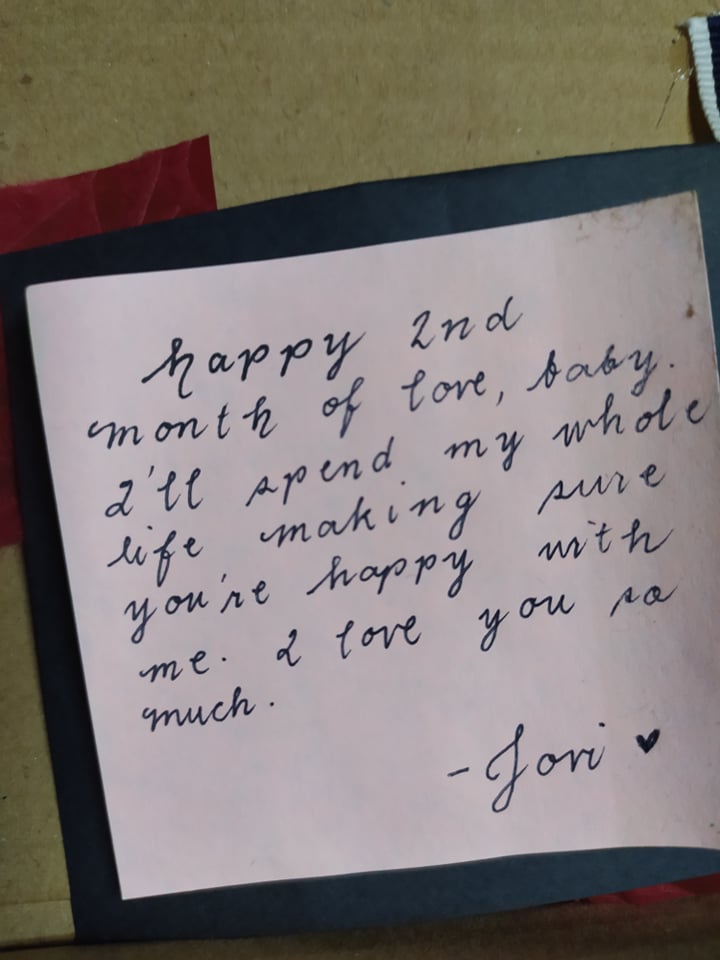 happy 2nd
month of love, baby.
I'll spend my whole
life making sure
you're happy with
me. I love you so
much.
- Jori ♥